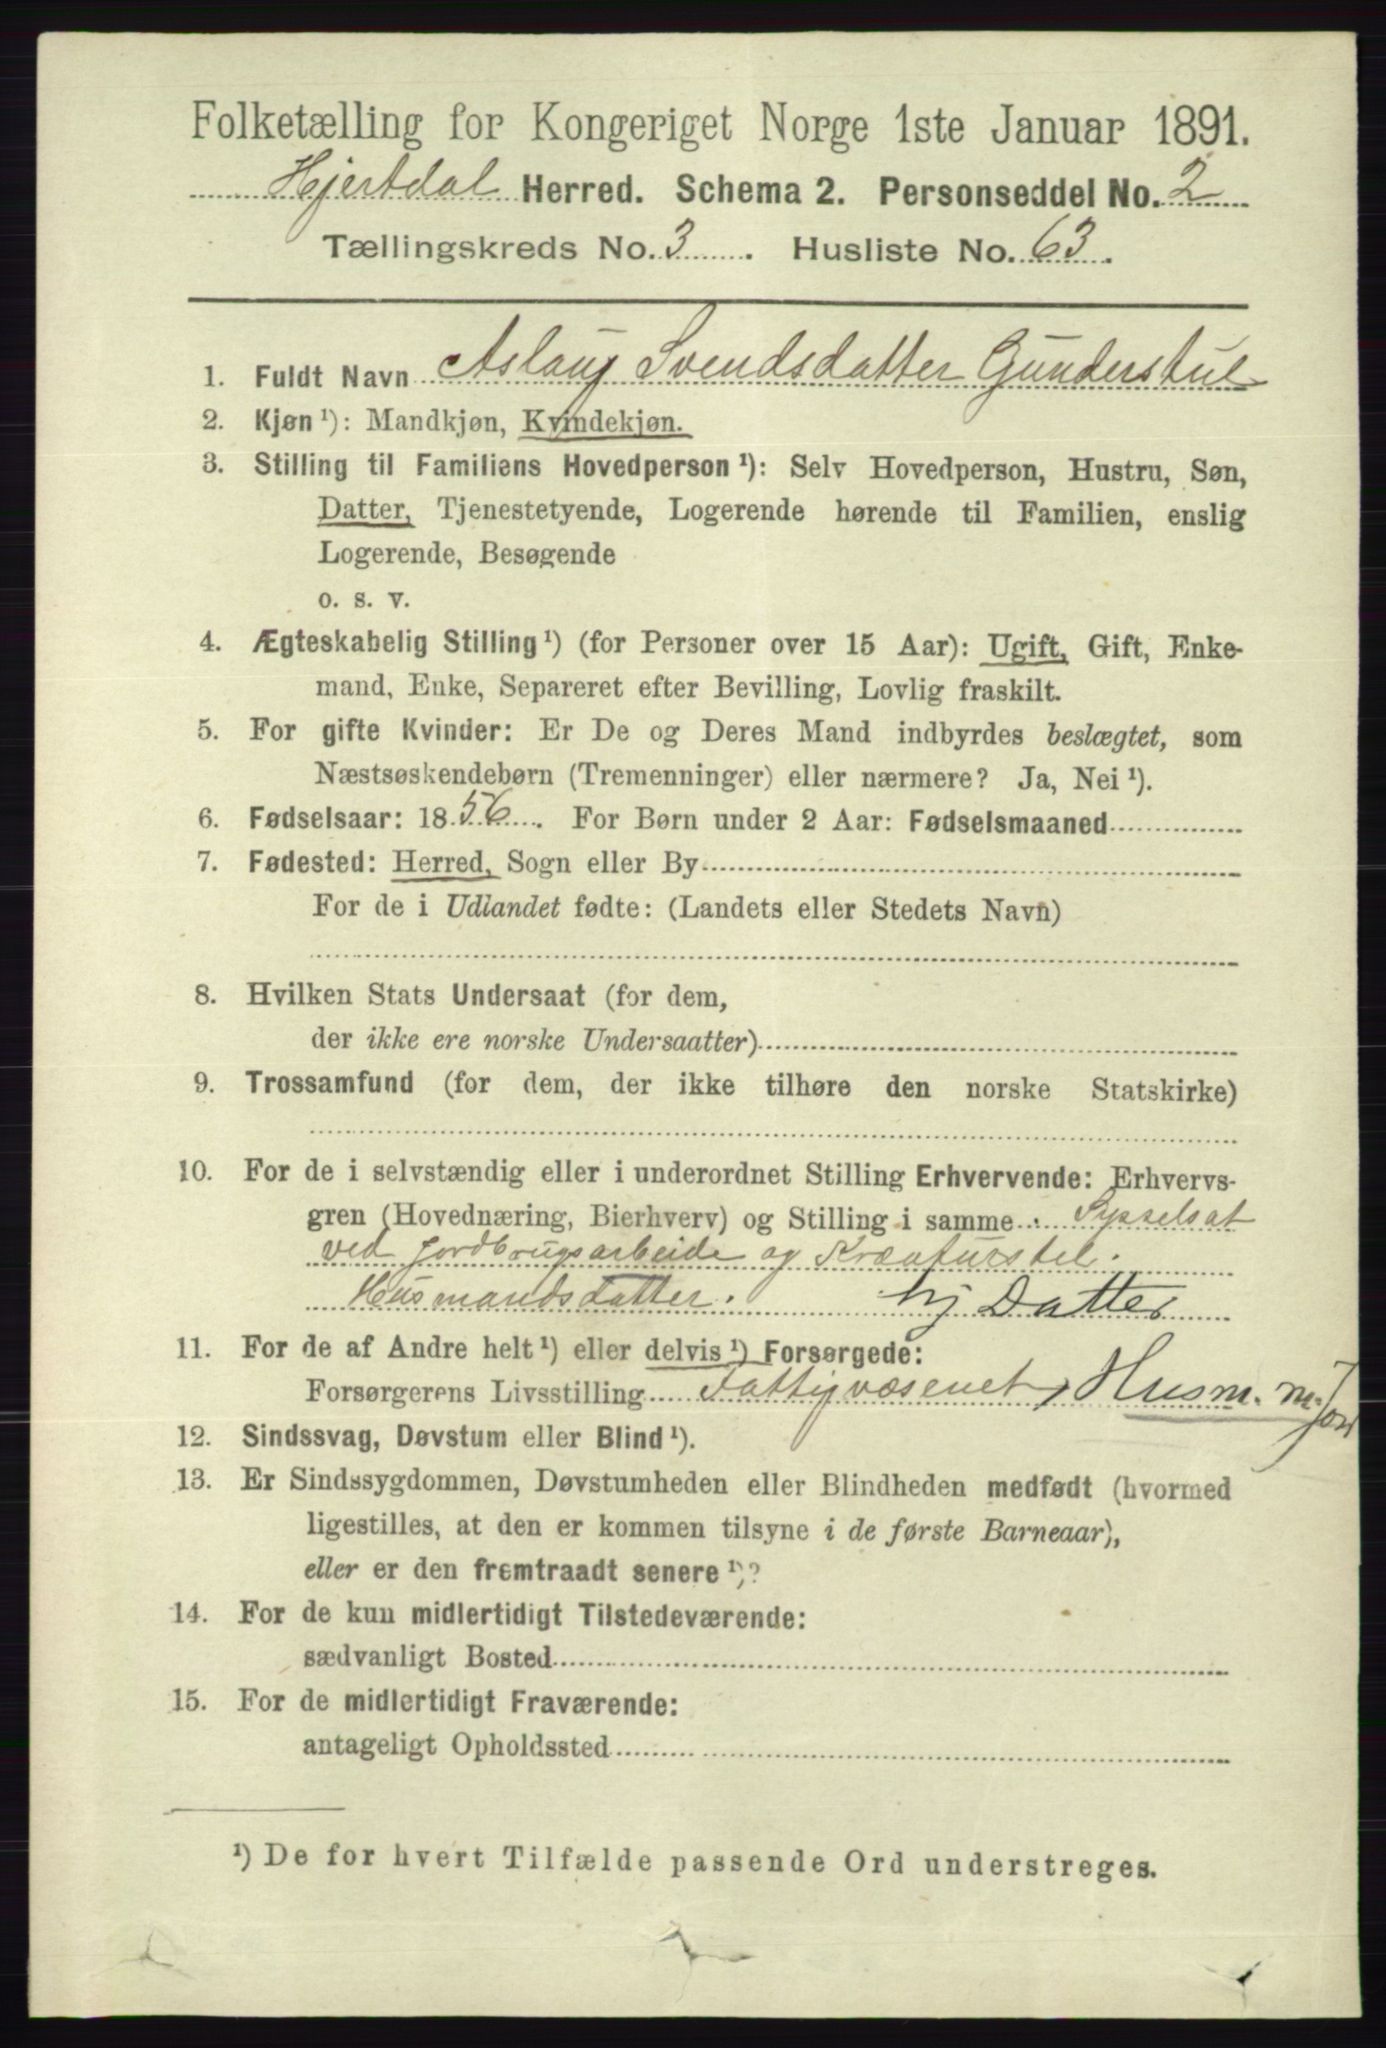 Folketælling for Kongeriget Norge 1ste Januar 1891.
Hjertdal Herred. Schema 2. Personseddel No. 2
Tællingskreds No. 3. Husliste No. 63.
1. Fuldt Navn Aslaug Svendsdatter Gunderstul
2. Kjøn ¹): Mandkjøn, Kvindekjøn.
3. Stilling til Familiens Hovedperson ¹): Selv Hovedperson, Hustru, Søn,
Datter, Tjenestetyende, Logerende hørende til Familien, enslig
Logerende, Besøgende
o. s. v.
4. Ægteskabelig Stilling ¹) (for Personer over 15 Aar): Ugift, Gift, Enke-
mand, Enke, Separeret efter Bevilling, Lovlig fraskilt.
5. For gifte Kvinder: Er De og Deres Mand indbyrdes beslægtet, som
Næstsøskendebørn (Tremenninger) eller nærmere? Ja, Nei ¹).
6. Fødselsaar: 1856. For Børn under 2 Aar: Fødselsmaaned
7. Fødested: Herred, Sogn eller By
For de i Udlandet fødte: (Landets eller Stedets Navn)
8. Hvilken Stats Undersaat (for dem,
der ikke ere norske Undersaatter)
9. Trossamfund (for dem, der ikke tilhøre den norske Statskirke)
10. For de i selvstændig eller i underordnet Stilling Erhvervende: Erhvervs-
gren (Hovednæring, Bierhverv) og Stilling i samme . Sysselsat
ved jordbrugsarbeide og Kræaturstel.
Husmandsdatter. hj Datter
11. For de af Andre helt ¹) eller delvis ¹) Forsørgede:
Forsørgerens Livsstilling Fattigvæsenet, Husm. m. Jord
12. Sindssvag, Døvstum eller Blind ¹).
13. Er Sindssygdommen, Døvstumheden eller Blindheden medfødt (hvormed
ligestilles, at den er kommen tilsyne i de første Barneaar),
eller er den fremtraadt senere ¹)?
14. For de kun midlertidigt Tilstedeværende:
sædvanligt Bosted
15. For de midlertidigt Fraværende:
antageligt Opholdssted
¹) De for hvert Tilfælde passende Ord understreges.